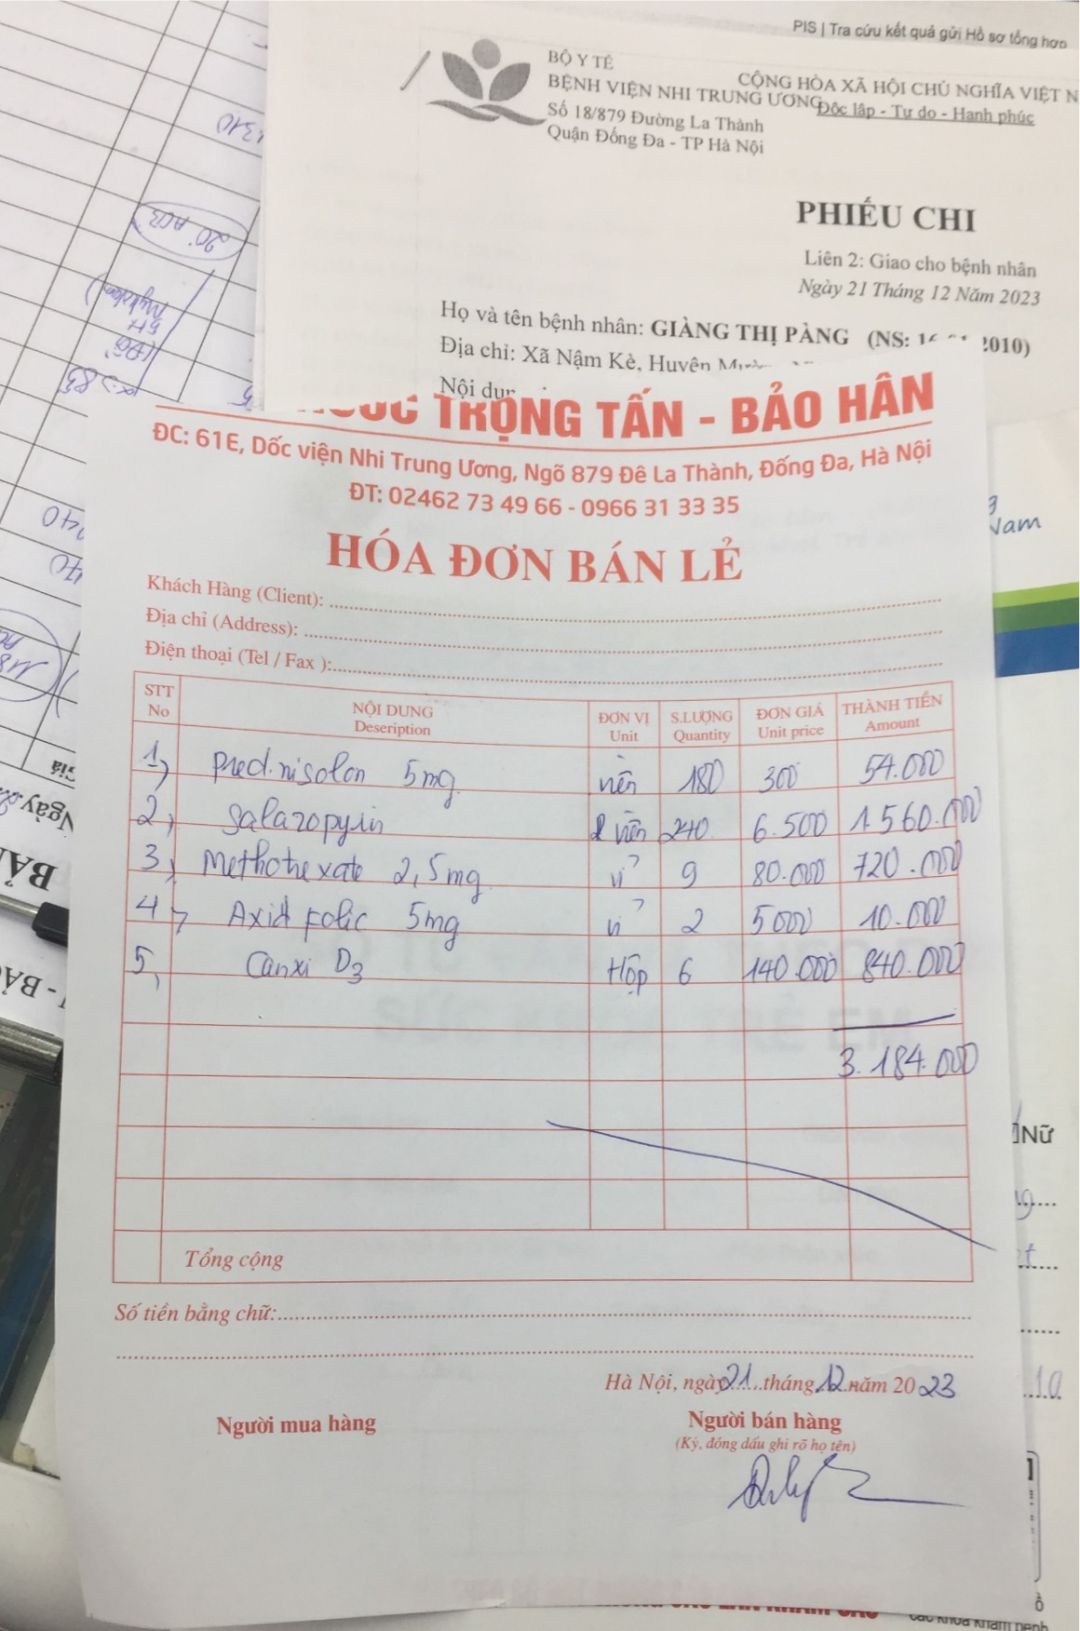 PIS | Tra cứu kết quả gửi Hồ sơ tổng hợp
BỘ Y TẾ
BỆNH VIỆN NHI TRUNG ƯƠNG
Số 18/879 Đường La Thành
Quận Đống Đa - TP Hà Nội
CỘNG HÒA XÃ HỘI CHỦ NGHĨA VIỆT N
Độc lập - Tự do - Hạnh phúc
PHIẾU CHI
Liên 2: Giao cho bệnh nhân
Ngày 21 Tháng 12 Năm 2023
Họ và tên bệnh nhân: GIÀNG THỊ PÀNG (NS: 2010)
Địa chỉ: Xã Nậm Kè, Huyện
Nội
TRỌNG TẤN - BẢO HÂN
ĐC: 61E, Dốc viện Nhi Trung Ương, Ngõ 879 Đê La Thành, Đống Đa, Hà Nội
ĐT: 02462 73 49 66 - 0966 31 33 35
HÓA ĐƠN BÁN LẺ
Khách Hàng (Client):
Địa chỉ (Address):
Điện thoại (Tel / Fax ):
STT No NỘI DUNG Deseription ĐƠN VỊ Unit S.LƯỢNG Quantity ĐƠN GIÁ Unit price THÀNH TIỀN Amount
1, Prednisolon 5mg viên 180 300 54.000
2, Salazopyrin viên 240 6.500 1.560.000
3, Methotrexate 2,5mg vỉ 9 80.000 720.000
4, Axid folic 5mg vỉ 2 5000 10.000
5, Canxi D3 Hộp 6 140.000 840.000
3.184.000
Tổng cộng
Số tiền bằng chữ:
Hà Nội, ngày 21 tháng 12 năm 2023
Người mua hàng
Người bán hàng
(Ký, đóng dấu ghi rõ họ tên)
Nam
Nữ